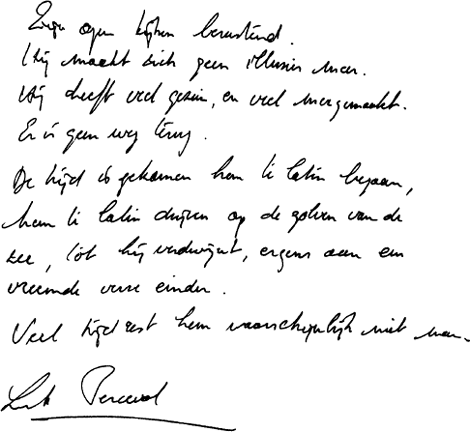 Zijn ogen kijken berustend.
Hij maakt zich geen illusies meer.
Hij heeft veel gezien, en veel meegemaakt.
Er is geen weg terug.
De tijd is gekomen hem te laten begaan,
hem te laten drijven op de golven van de
zee, tot hij verdwijnt, ergens aan een
vreemde verre einder.
Veel tijd rest hem waarschijnlijk niet meer.
Luk Perceval